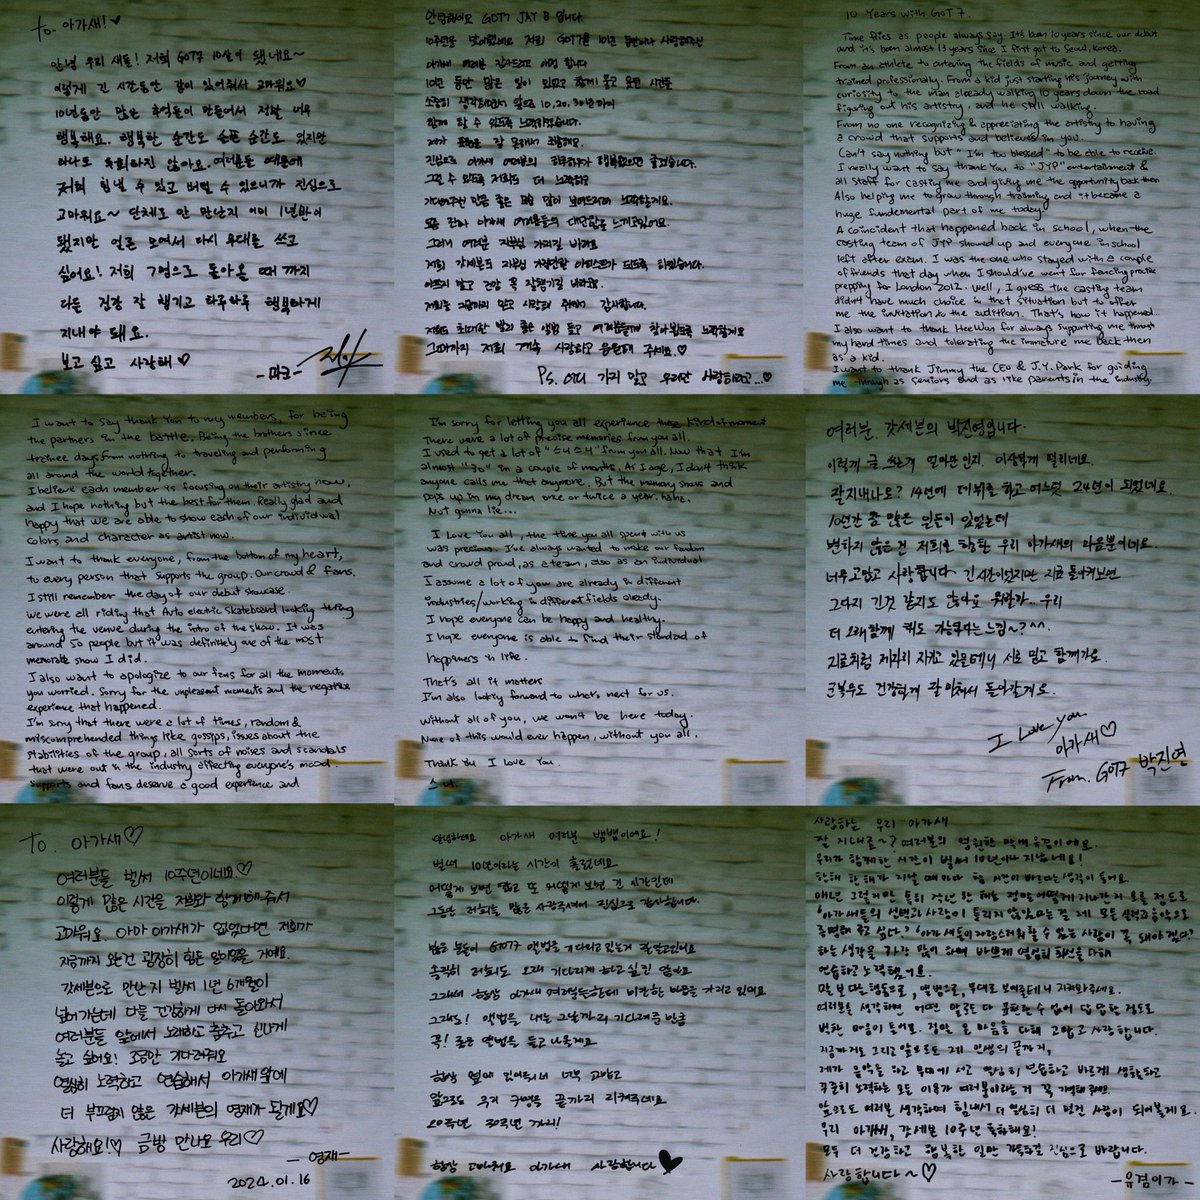 to. 아가새!♡
안녕 우리 새들! 저희 GOT7 10살이 됐네요~
이렇게 긴 시간동안 같이 있어줘서 고마워요♡
10년동안 많은 추억들이 만들어서 정말 너무
행복해요. 행복한 순간도 슬픈 순간도 있지만
하나도 후회하진 않아요. 여러분들 때문에
저희 힘낼 수 있고 버틸 수 있으니까 진심으로
고마워요~ 단체로 안 만난지 이미 1년반이
됐지만 얼른 모여서 다시 무대를 쓰고
싶어요! 저희 7명으로 돌아올 때까지
다들 건강 잘 챙기고 하루하루 행복하게
지내야 돼요.
보고 싶고 사랑해♡
-마크-
안녕하세요 GOT7 JAY B 입니다.
10주년을 맞이했네요 저희 GOT7을 10년 동안이나 사랑해주신
아가새 여러분 감사드리고 사랑 합니다
10년 동안 많은 일이 있었고 함께 웃고 울던 시간을
소중히 생각하면서 앞으로 10, 20, 30년까지
함께 할 수 있도록 노력하겠습니다.
제가 표현을 잘 못해서 죄송해요.
진심으로 아가새 여러분의 하루하루가 행복했으면 좋겠습니다.
그럴 수 있도록 저희도 더 노력하고
기다려주신 만큼 좋은 모습 많이 보여드리려 노력할게요.
요즘 들어 아가새 여러분들의 대단함을 느끼고있어요.
그러니 여러분 자부심 가지길 바래요
저희 갓세븐도 자부심 가질만한 아티스트가 되도록 하겠습니다.
아프지 말고 건강 꼭 잘챙기길 바라요.
저희를 지금까지 믿고 사랑해 주셔서 감사합니다.
저희도 최대한 빨리 좋은 앨범 들고 여러분들께 찾아뵙도록 노력할게요
그때까지 저희 계속 사랑하고 응원해 주세요.♡
P.s. 어디 가지 말고 우리만 사랑하라고...♡
10 Years with GOT7.
Time flies as people always say. It's been 10 years since our debut
and it's been almost 13 years since I first got to Seoul, Korea.
From an athlete to entering the fields of music and getting
trained professionally. From a kid just starting his journey with
curiosity to the man already walking 10 years down the road
figuring out his artistry, and he still walking.
From no one recognizing & appreciating the artistry to having
a crowd that supports and believes in you.
Can't say nothing but "I'm too blessed" to be able to receive.
I really want to say thank You to "JYP" entertainment &
all staff for casting me and giving me the opportunity back then
Also helping me to grow through training and it became a
huge fundemental part of me today.
A coincident that happened back in school, when the
casting team of JYP showed up and everyone in school
left after exam. I was the one who stayed with a couple
of friends that day when I should've went for fencing practice
prepping for London 2012. Well, I guess the casting team
didn't have much choice in that situation but to offer
me the invitation to the audition. That's how it happened.
I also want to thank HeeWon for always supporting me through
my hard times and tolerating the immature me back then
as a kid.
I want to thank Jimmy the CEO & J.Y. Park for guiding
me through as seniors and as like parents in the industry.
I want to say thank You to my members. for being
the partners in the battle. Being the brothers since
trainee days from nothing to traveling and performing
all around the world together.
I believe each member is focusing on their artistry now.
and I hope nothing but the best for them. Really glad and
happy that we are able to show each of our individual
colors and character as artist now.
I want to thank everyone, from the bottom of my heart,
to every person that supports the group. Our crowd & fans.
I still remember the day of our debut showcase.
we were all riding that Auto electric skateboard looking thing
entering the venue during the intro of the show. It was
around 50 people but it was definitely one of the most
memorable show I did.
I also want to apologize to our fans for all the moments
you worried. Sorry for the unpleasent moments and the negative
experience that happened.
I'm sorry that there were a lot of times, random &
miscomprehended things like gossips, issues about the
stabilities of the group, all sorts of noises and scandals
that were out in the industry affecting everyone's mood.
supports and fans deserve a good experience and
I'm sorry for letting you all experience those kind of moment
There were a lot of precise memories from you all.
I used to get a lot of "스니스니" from you all. Now that I'm
almost "30" in a couple of months. As I age, I don't think
anyone calls me that anymore. But the memory snows and
pops up in my dream once or twice a year. haha.
Not gunna lie...
I Love You all, the time you all spent with us
was precious. I've always wanted to make our fandom
and crowd proud, as a team, also as an individual
I assume a lot of you are already in different
industries/working in different fields already.
I hope everyone can be happy and healthy.
I hope everyone is able to find their standard of
happiness in life.
That's all it matters
I'm also looking forward to what's next for us.
without all of you, we won't be here today.
None of this would ever happen, without you all.
Thank You I Love You.
여러분. 갓세븐의 박진영입니다.
이렇게 글 쓰는게 얼마만인지. 이상하게 떨리네요.
잘지내나요? 14년에 데뷔를 하고 어느덧 24년이 되었네요.
10년간 참 많은 일들이 있었는데
변하지 않은 건 저희로 향한 우리 아가새의 마음뿐이네요.
너무 고맙고 사랑합니다 긴 시간이었지만 지금 돌이켜보면
그다지 긴것 같지도 않아요 뭐랄까.. 우리
더 오래 함께 해도 가능하다는 느낌~? ^^.
지금처럼 제자리 지키고 있을테니 서로 믿고 함께가요.
군복무도 건강하게 잘 마쳐서 돌아갈게요.
I Love you
아가새♡
From. GOT7 박진영
To. 아가새♡
여러분들 벌써 10주년이네요♡
이렇게 많은 시간을 저희와 함께해줘서
고마워요. 아마 아가새가 없었다면 저희가
지금까지 온건 굉장히 힘든 일이었을 거예요.
갓세븐으로 만난지 벌써 1년 6개월이
넘어가는데 다들 건강하게 다시 돌아와서
여러분들 앞에서 노래하고 춤추고 신나게
놀고 싶어요! 조금만 기다려줘요
열심히 노력하고 연습해서 아가새앞에
더 부끄럽지 않은 갓세븐의 영재가 될게요♡
사랑해요!♡ 금방 만나요 우리♡
-영재-
2024.01.16
안녕하세요 아가새 여러분 뱀뱀이에요!
벌써 10년이라는 시간이 흘렀네요
어떻게 보면 짧고 또 어떻게 보면 긴 시간인데
그동안 저희를 많은 사랑주셔서 진심으로 감사합니다.
많은 분들이 GOT7 앨범을 기다리고 있는거 잘알고있어요
솔직히 저희도 오래 기다리게 하고 싶진 않아요
그래서 항상 아가새 여러분들한테 미안한 마음을 가지고 있어요
그래도! 앨범을 내는 그날까지 기다려준 만큼
꼭! 좋은 앨범을 들고 나올게요
항상 옆에 있어줘서 너무 고맙고
앞으로도 우리 7명을 끝까지 지켜주세요
20주년 30주년 가자!
항상 고마워요 아가새 사랑합니다♥
사랑하는 우리 아가새
잘 지내죠~? 여러분의 영원한 막내 유겸이에요.
우리가 함께한 시간이 벌써 10년이나 지났네요!
한해 한해가 지날 때마다 참 시간이 빠르다는 생각이 들어요.
매년 그렇지만 특히 작년 한 해는 정말 어떻게 지나간지 모를 정도로
'아가새들의 선택과 사랑이 틀리지 않았다는 걸 제 모든 실력과 음악으로
증명해 주고 싶다? '아가새들이 자랑스러워할 수 있는 사람이 꼭 돼야겠다?
하는 생각을 가장 많이 하며 바쁘게 열심히 최선을 다해
연습하고 노력했어요.
말 보다는 행동으로, 앨범으로, 무대로 보여줄테니 지켜봐주세요.
여러분을 생각하면 어떤 말로도 다 표현할 수 없어 답답할 정도로
벅찬 마음이 들어요. 정말 온 마음을 다해 고맙고 사랑합니다.
지금까지도 그리고 앞으로도 제 인생의 끝까지,
제가 음악을 하고 무대에 서고 열심히 연습하고 바르게 생활하고
꾸준히 노력하는 모든 이유가 여러분이라는 거 꼭 기억해 줘요.
앞으로도 여러분 생각하며 힘내서 더 열심히 더 멋진 사람이 되어볼게요.
우리 아가새, 갓세븐 10주년 축하해요!
모두 더 건강하고 행복한 일만 가득하길 진심으로 바랍니다.
사랑합니다~♡
-유겸이가-